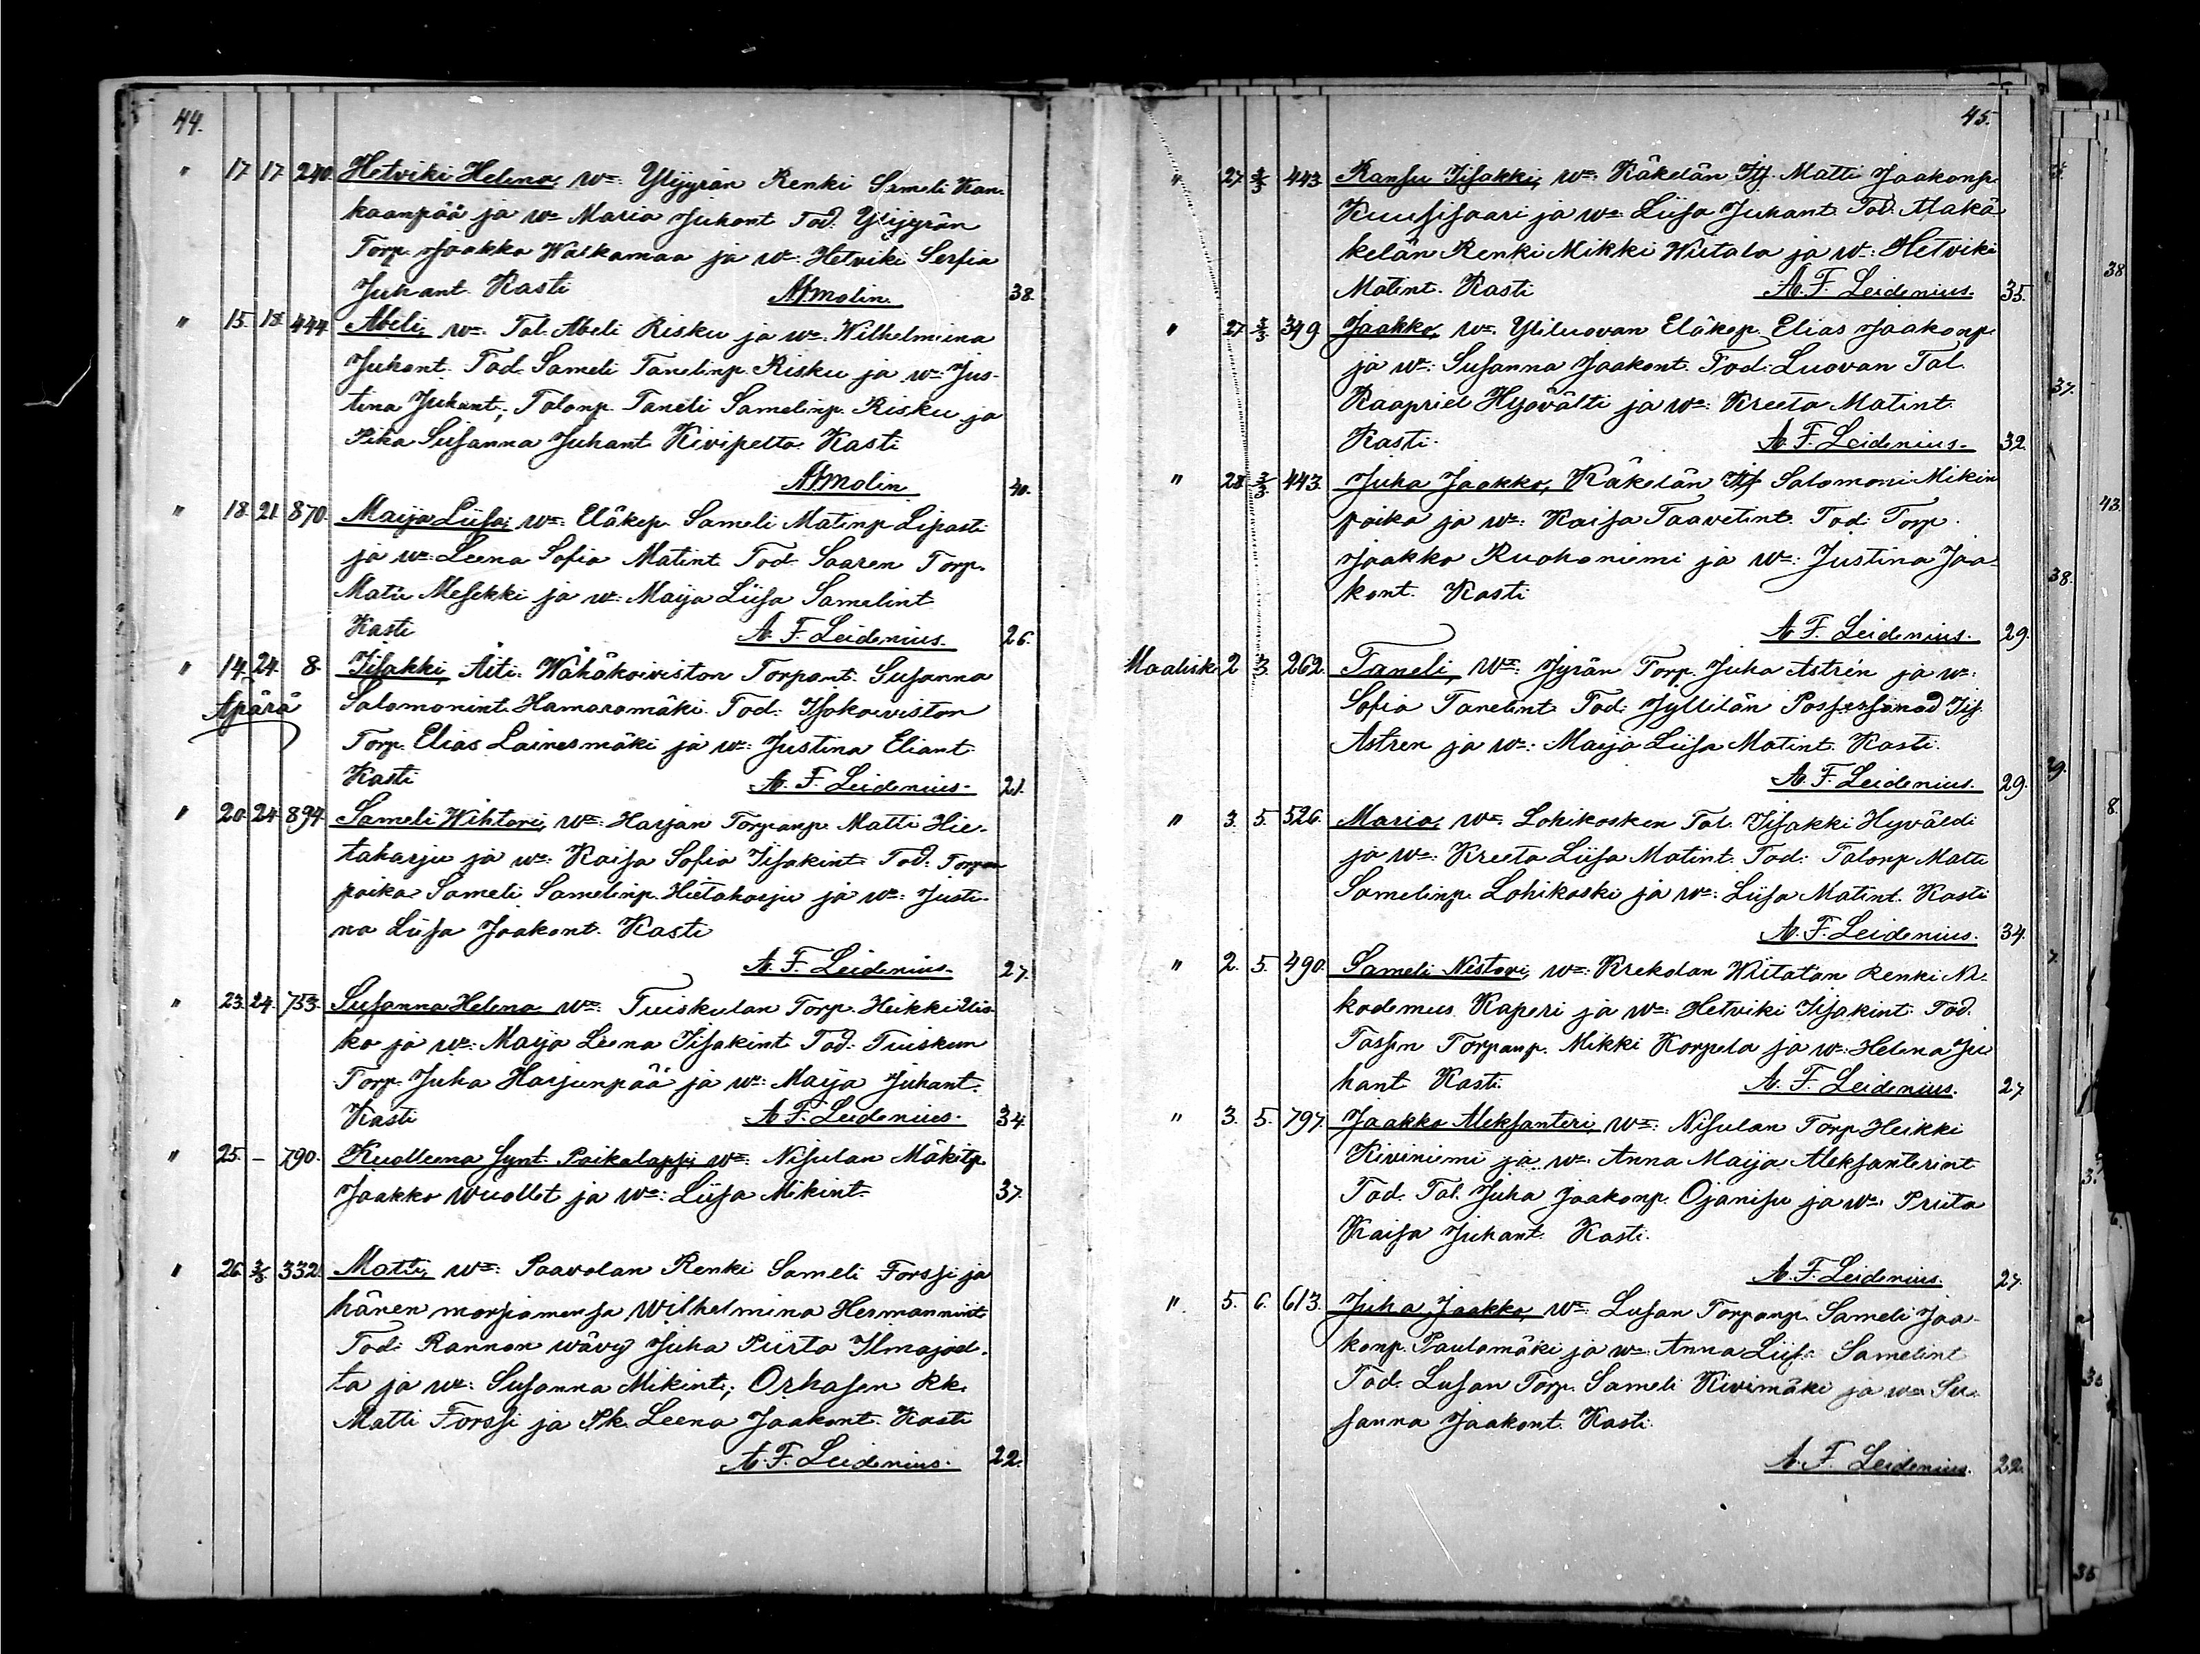 44.
" 17 17 240. Hetviki Helena, Wm: Ylijyrän Renki Sameli Kan-
kaanpää ja wo Maria Juhant Tod. Ylijyrän
Torp. Jaakko Walkamaa ja w: Hetviki Serfia
Juhant. Kasti Molin. 38.
" 15. 18. 444. Abeli, wm: Tal. Abeli Risku ja wo: Wilhelmiina
Juhant. Tod. Sameli Tanelinp. Risku ja wo: Jus-
tina Juhant; Talonp. Taneli Samelinp. Risku ja
Pika Susanna Juhant Kivipelto. Kasti
Molin 40.
" 18. 21. 870. Maija Liisa, wm: Eläkep. Sameli Matinp Lipasti
ja wo: Leena Sofia Matint. Tod. Saaren Torp.
Matti Mesekki ja w: Maija Liisa Samelint
Kasti A. F. Leidenius. 26.
" 14. 24. 8. Iisakki, Äiti: Wähäkoiviston Torpant. Susanna
Äpärä Salomonint. Hamaromäki. Tod: Isokoiviston
Torp. Elias Lainesmäki ja wo: Justina Eliant.
Kasti A. F. Leidenius. 21.
" 20. 24. 894. Sameli Wihtori, wm: Harjan Torpanp. Matti Hie-
taharju ja wo: Kaisa Sofia Iisakint. Tod: Torpan
poika Sameli Samelinp. Hietaharju ja wo: Justi-
na Liisa Jaakont. Kasti
A. F. Leidenius. 27.
" 23. 24. 753. Susanna Helena wm: Tuiskulan Torp. Heikki Uis-
ko ja wo: Maija Leena Iisakint. Tod: Tuiskun
Torp. Juha Harjunpää ja wo: Maija Juhant.
Kasti A. F. Leidenius. 34.
" 25. – 790. Kuolleena synt. Poikalapsi, wm: Nisulan Mäkitp.
Jaakko Wuollet ja wo: Liisa Mikint. 37.
" 26. 332. Matti, wm: Paavolan Renki Sameli Forssi ja
hänen morsiamensa Wilhelmina Hermannint.
Tod: Rannan wävy Juha Piirto Ilmajoel-
ta ja wo: Susanna Mikint; Orhasen Rk.
Matti Forssi ja Pk. Leena Jaakont. Kasti
A. F. Leidenius. 22.
45.
" 27. 2/3 443. Ransu Iisakki, wm: Käkelän Itj. Matti Jaakonp.
Kuusisaari ja wo: Liisa Juhant. Tod: Alakä-
kelän Renki Mikki Wiitala ja w: Hetviki
Matint. Kasti A. F. Leidenius. 35.
" 27. 2/3 349. Jaakko, wm: Yliluovan Eläkep. Elias Jaakonp.
ja wo: Susanna Jaakont. Tod: Luovan Tal.
Kaapriel Hyövälti ja wo: Kreeta Matint.
Kasti. A. F. Leidenius. 32.
" 28. 2/3 443. Juha Jaakko, Käkelän Itj. Salomoni Mikin
poika ja wo: Kaisa Taavetint. Tod: Torp.
Jaakko Ruohoniemi ja wo: Justina Jaa-
kont. Kasti
A. F. Leidenius. 29.
Maalisk. 2. 3. 262. Taneli, wm: Jyrän Torp. Juha Astrén ja wo:
Sofia Tanelint. Tod: Jyllilän Possessionad Iis.
Astren ja wo: Maija Liisa Matint. Kasti.
A. F. Leidenius. 29.
" 3. 5. 526. Maria, wm: Lohikosken Tal. Iisakki Hyväldi
ja wo: Kreeta Liisa Matint. Tod: Talonp. Matti
Samelinp. Lohikoski ja wo: Liisa Matint. Kasti
A. F. Leidenius. 34.
" 2. 5. 490. Sameli Nestori, wm: Krekolan Wiitalan Renki Ni-
kodemus Kaperi ja wo: Hetviki Iisakint. Tod.
Tassin Torpanp. Mikki Korpela ja wo: Helena Ju-
hant Kasti. A. F. Leidenius. 27
" 3. 5. 797. Jaakko Aleksanteri, wm: Nisulan Torp Heikki
Kiviniemi ja wo: Anna Maija Aleksanterint.
Tod: Tal. Juha Jaakonp. Ojanisu ja wo: Priita
Kaisa Juhant. Kasti.
A. F. Leidenius. 27.
". 5. 6. 613. Juha Jaakko, wm: Lusan Torpanp. Sameli Jaa-
konp. Paulamäki ja wo: Anna Liisa Samelint
Tod. Lusan Torp. Sameli Kivimäki ja wo: Su-
sanna Jaakont. Kasti.
A. F. Leidenius. 22.